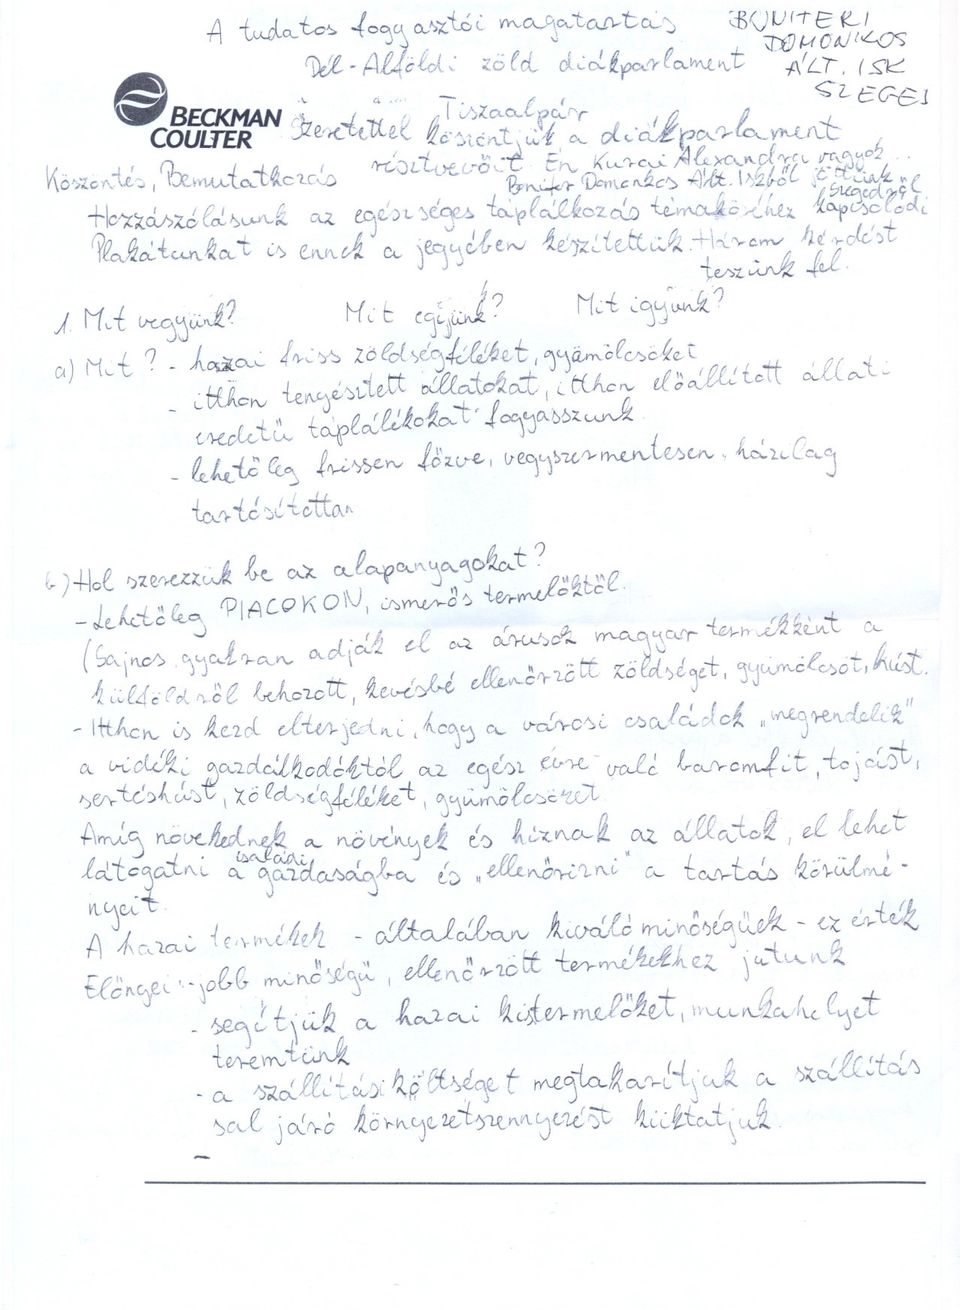 A tudatos fogyasztói magatartás
BONITERI
DOMONKOS
ÁLT. ISK
SZEGED
Dél-Alföldi zöld diákparlament
Tiszaalpár
BECKMAN
COULTER
Szeretettel köszöntjük a diákparlament
Köszöntés, Bemutatkozás résztvevőit. Én Kurai Alexandra vagyok
Domonkos Ált. Iskból jöttünk Szegedről
Hozzászólásunk az egészséges táplálkozás témaköréhez kapcsolódi
Plakátunkat is ennek a jegyében készítettük. Három kérdést
teszünk fel.
1. Mit vegyünk? Mit együnk? Mit igyunk?
a) Mit? - hazai friss zöldségféléket, gyümölcsöket
- itthon tenyésztett állatokat, itthon előállított állati
eredetű táplálékokat fogyasszunk.
- lehetőleg frissen főzve, vegyszermentesen, házilag
tartósítottan
b) Hol szerezzük be az alapanyagokat?
- Lehetőleg PIACOKON, ismerős termelőktől.
(Sajnos gyakran adják el az árusok magyar termékként a
külföldről behozott, kevésbé ellenőrzött zöldséget, gyümölcsöt, húst.
- Itthon is kezd elterjedni, hogy a városi családok „megrendelik"
a vidéki gazdálkodóktól az egész évre való baromfit, tojást,
sertéshúst, zöldségféléket, gyümölcsözet.
Amíg növekednek a növények és híznak az állatok, el lehet
látogatni a családi gazdaságba és „ellenőrizni" a tartás körülmé-
nyeit.
A hazai termékek - általában kiváló minőségűek - ez érték
Előnyei: - jobb minőségű, ellenőrzött termékekhez jutunk
- segítjük a hazai kistermelőket, munkahelyet
teremtünk
- a szállítási költséget megtakarítjuk a szállítás
sal járó környezetszennyezést kiiktatjuk.
-